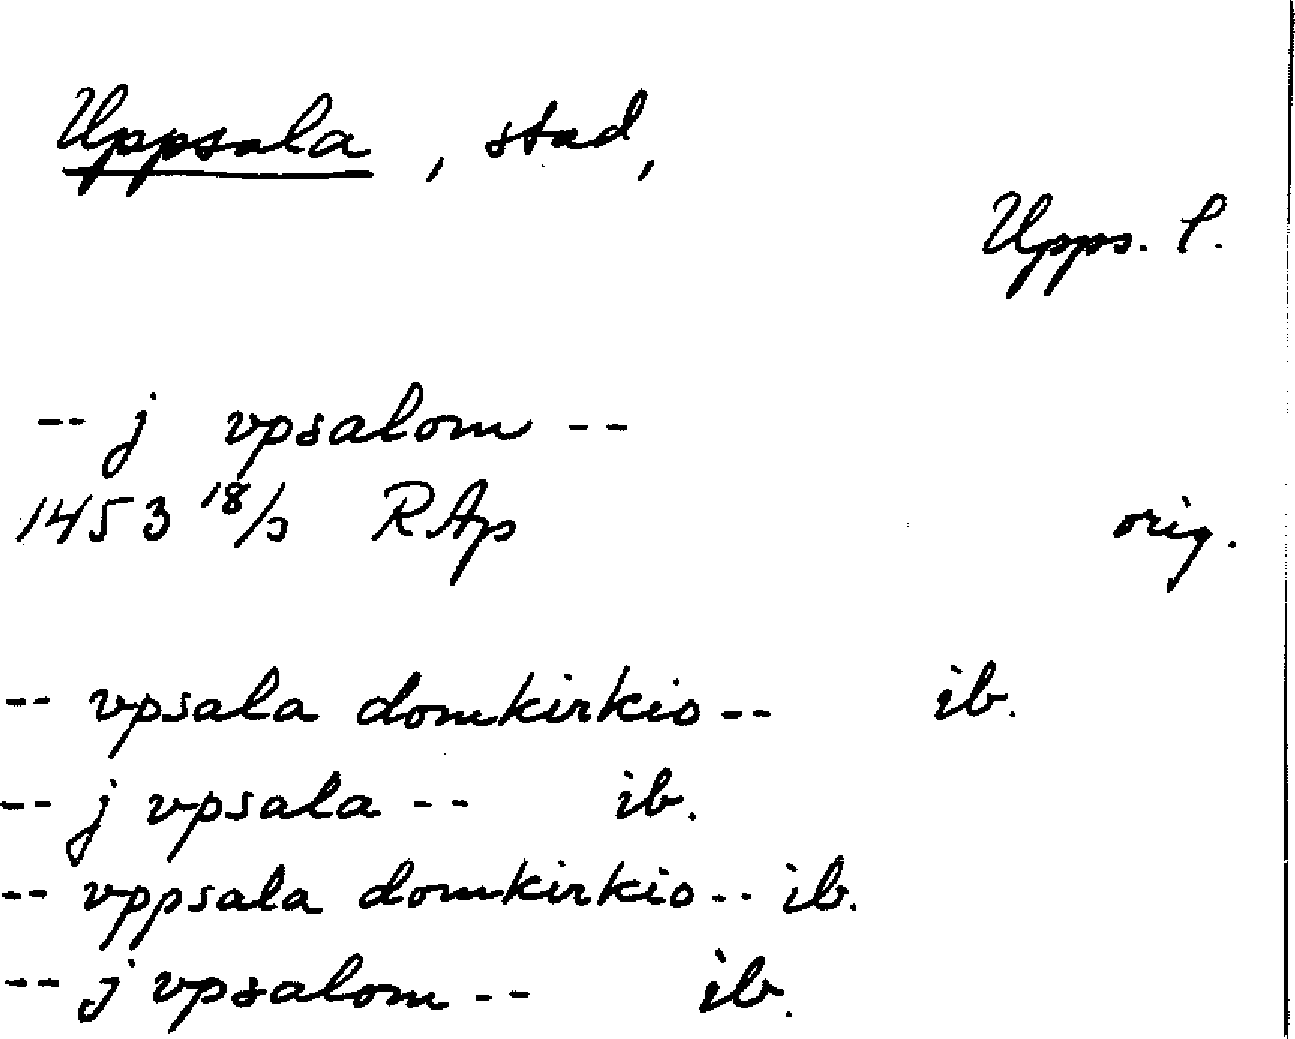 Uppsala, stad,
Upps. l.
-- j vpsalom --
1453 18/3 RAp orig.
-- vpsala domkirkio -- ib.
-- j vpsala -- ib.
-- vppsala domkirkio -- ib.
-- j vpsalom -- ib.